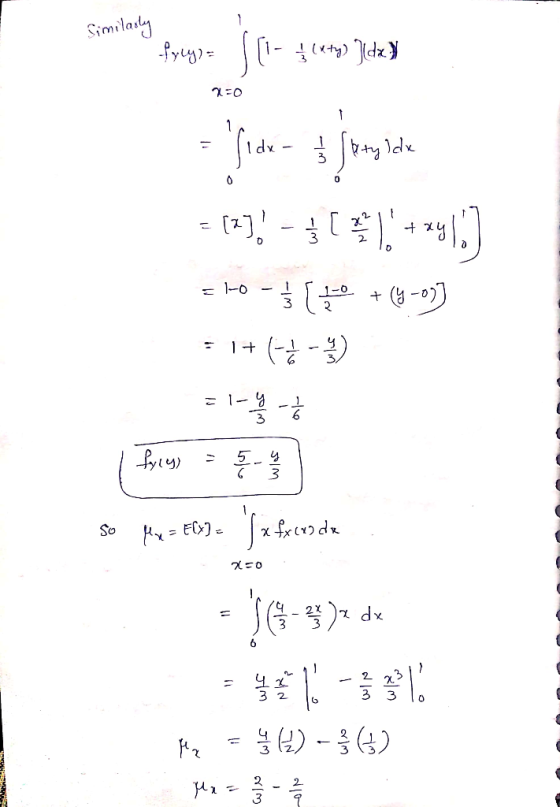 Similarly
f_Y(y) = ∫_{x=0}^{1} [1 - 1/3 (x+y)](dx)
= ∫_0^1 1 dx - 1/3 ∫_0^1 (x+y) dx
= [x]_0^1 - 1/3 [x²/2 |_0^1 + xy |_0^1]
= 1-0 - 1/3 [(1-0)/2 + (y-0)]
= 1 + (-1/6 - y/3)
= 1 - y/3 - 1/6
f_Y(y) = 5/6 - y/3
So μ_x = E[X] = ∫_{x=0}^{1} x f_X(x) dx
= ∫_0^1 (4/3 - 2x/3) x dx
= 4/3 x²/2 |_0^1 - 2/3 x³/3 |_0^1
μ_x = 4/3 (1/2) - 2/3 (1/3)
μ_x = 2/3 - 2/9